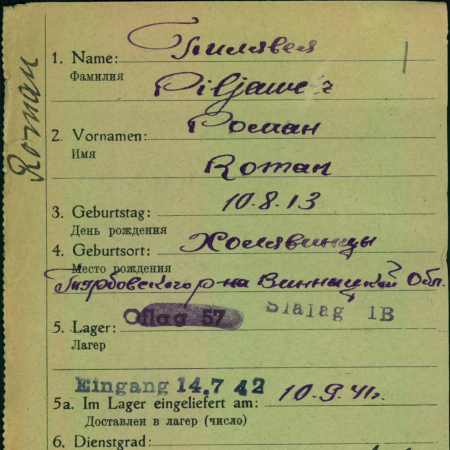 Roman
1. Name: Пилявец
Фамилия
Piljawez
2. Vornamen: Роман
Имя
Roman
3. Geburtstag: 10.8.13
День рождения
4. Geburtsort: Холявинцы
Место рождения
р-на Винницкой Обл.
Oflag 57 Stalag 1B
5. Lager:
Лагер
Eingang 14.7 42
5a. Im Lager eingeliefert am: 10.9.41г.
Доставлен в лагер (число)
6. Dienstgrad: